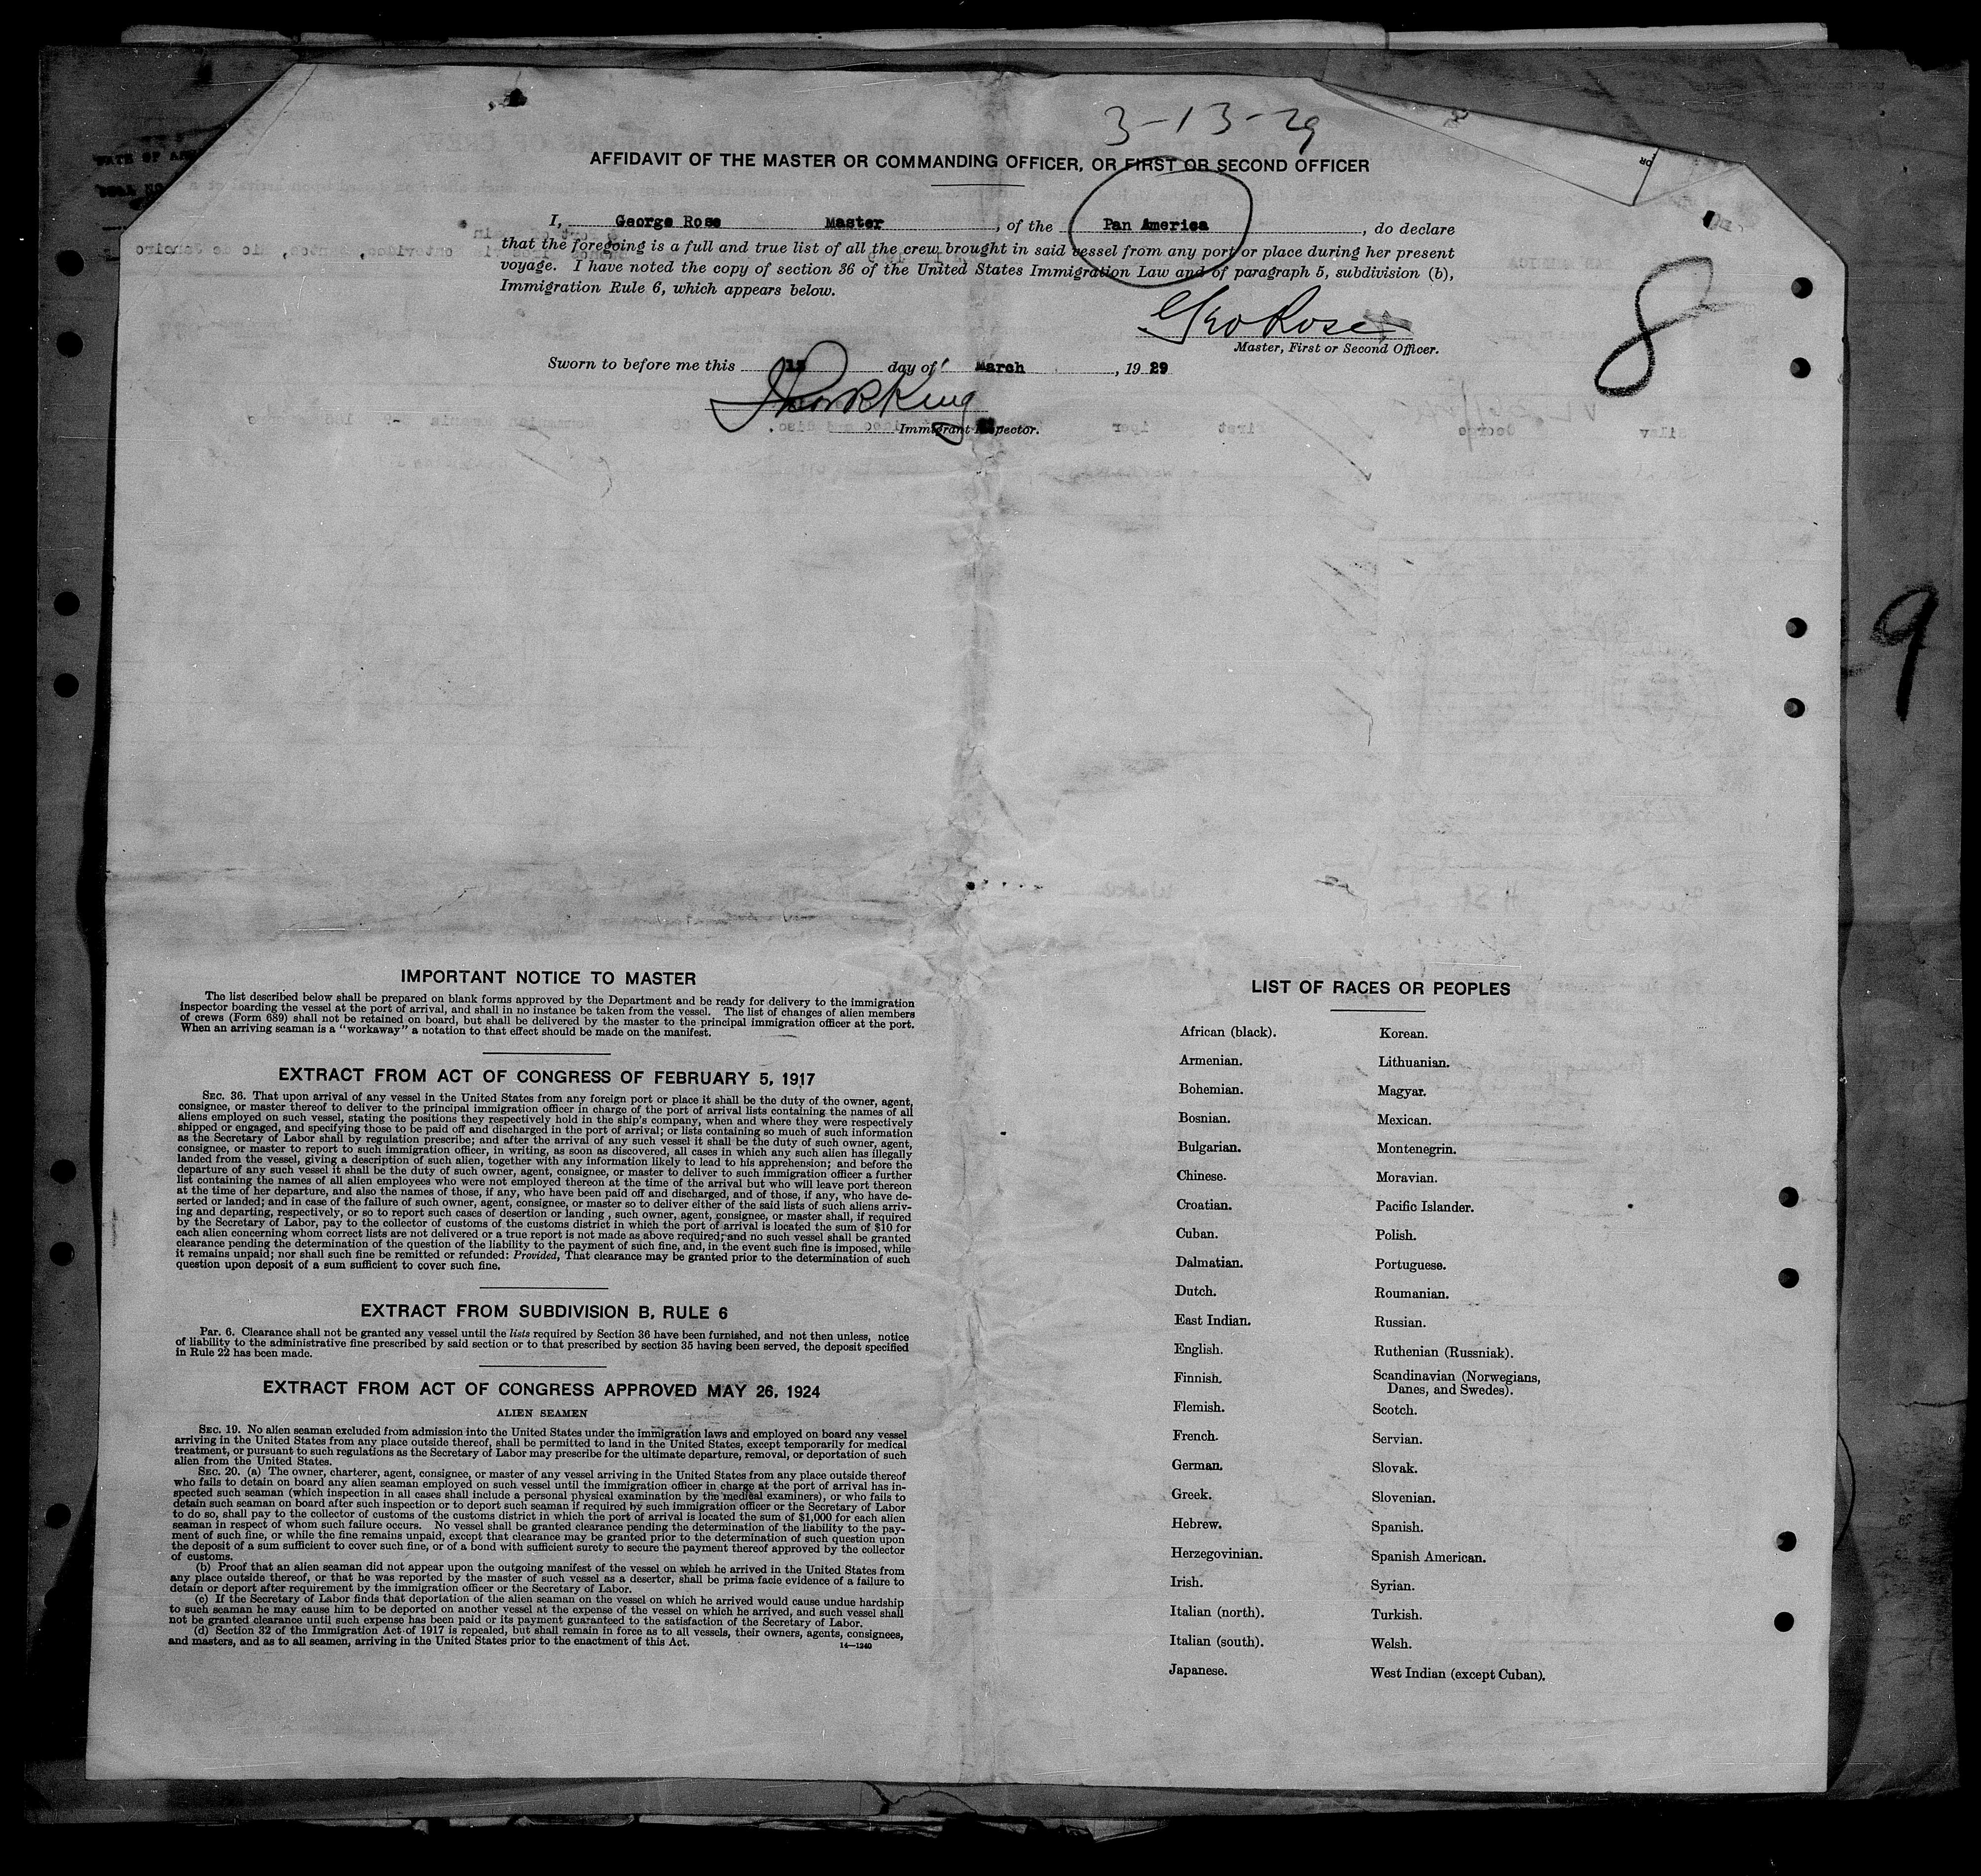 3-13-29
AFFIDAVIT OF THE MASTER OR COMMANDING OFFICER, OR FIRST OR SECOND OFFICER
I, George Rose Master, of the Pan America, do declare
that the foregoing is a full and true list of all the crew brought in said vessel from any port or place during her present
voyage. I have noted the copy of section 36 of the United States Immigration Law and of paragraph 5, subdivision (b),
Immigration Rule 6, which appears below.
Geo Rose
Master, First or Second Officer.
8
Sworn to before me this day of March, 1929
King
Immigrant Inspector.
9
IMPORTANT NOTICE TO MASTER
The list described below shall be prepared on blank forms approved by the Department and be ready for delivery to the immigration
inspector boarding the vessel at the port of arrival, and shall in no instance be taken from the vessel. The list of changes of alien members
of crews (Form 689) shall not be retained on board, but shall be delivered by the master to the principal immigration officer at the port.
When an arriving seaman is a "workaway" a notation to that effect should be made on the manifest.
EXTRACT FROM ACT OF CONGRESS OF FEBRUARY 5, 1917
SEC. 36. That upon arrival of any vessel in the United States from any foreign port or place it shall be the duty of the owner, agent,
consignee, or master thereof to deliver to the principal immigration officer in charge of the port of arrival lists containing the names of all
aliens employed on such vessel, stating the positions they respectively hold in the ship's company, when and where they were respectively
shipped or engaged, and specifying those to be paid off and discharged in the port of arrival; or lists containing so much of such information
as the Secretary of Labor shall by regulation prescribe; and after the arrival of any such vessel it shall be the duty of such owner, agent,
consignee, or master to report to such immigration officer, in writing, as soon as discovered, all cases in which any such alien has illegally
landed from the vessel, giving a description of such alien, together with any information likely to lead to his apprehension; and before the
departure of any such vessel it shall be the duty of such owner, agent, consignee, or master to deliver to such immigration officer a further
list containing the names of all alien employees who were not employed thereon at the time of the arrival but who will leave port thereon
at the time of her departure, and also the names of those, if any, who have been paid off and discharged, and of those, if any, who have de-
serted or landed; and in case of the failure of such owner, agent, consignee, or master so to deliver either of the said lists of such aliens arriv-
ing and departing, respectively, or so to report such cases of desertion or landing, such owner, agent, consignee, or master, shall, if required
by the Secretary of Labor, pay to the collector of customs of the customs district in which the port of arrival is located the sum of $10 for
each alien concerning whom correct lists are not delivered or a true report is not made as above required; and no such vessel shall be granted
clearance pending the determination of the question of the liability to the payment of such fine, and, in the event such fine is imposed, while
it remains unpaid; nor shall such fine be remitted or refunded: Provided, That clearance may be granted prior to the determination of such
question upon deposit of a sum sufficient to cover such fine.
EXTRACT FROM SUBDIVISION B, RULE 6
Par. 6. Clearance shall not be granted any vessel until the lists required by Section 36 have been furnished, and not then unless, notice
of liability to the administrative fine prescribed by said section or to that prescribed by section 35 having been served, the deposit specified
in Rule 22 has been made.
EXTRACT FROM ACT OF CONGRESS APPROVED MAY 26, 1924
ALIEN SEAMEN
SEC. 19. No alien seaman excluded from admission into the United States under the immigration laws and employed on board any vessel
arriving in the United States from any place outside thereof, shall be permitted to land in the United States, except temporarily for medical
treatment, or pursuant to such regulations as the Secretary of Labor may prescribe for the ultimate departure, removal, or deportation of such
alien from the United States.
SEC. 20. (a) The owner, charterer, agent, consignee, or master of any vessel arriving in the United States from any place outside thereof
who fails to detain on board any alien seaman employed on such vessel until the immigration officer in charge at the port of arrival has in-
spected such seaman (which inspection in all cases shall include a personal physical examination by the medical examiners), or who fails to
detain such seaman on board after such inspection or to deport such seaman if required by such immigration officer or the Secretary of Labor
to do so, shall pay to the collector of customs of the customs district in which the port of arrival is located the sum of $1,000 for each alien
seaman in respect of whom such failure occurs. No vessel shall be granted clearance pending the determination of the liability to the pay-
ment of such fine, or while the fine remains unpaid, except that clearance may be granted prior to the determination of such question upon
the deposit of a sum sufficient to cover such fine, or of a bond with sufficient surety to secure the payment thereof approved by the collector
of customs.
(b) Proof that an alien seaman did not appear upon the outgoing manifest of the vessel on which he arrived in the United States from
any place outside thereof, or that he was reported by the master of such vessel as a deserter, shall be prima facie evidence of a failure to
detain or deport after requirement by the immigration officer or the Secretary of Labor.
(c) If the Secretary of Labor finds that deportation of the alien seaman on the vessel on which he arrived would cause undue hardship
to such seaman he may cause him to be deported on another vessel at the expense of the vessel on which he arrived, and such vessel shall
not be granted clearance until such expense has been paid or its payment guaranteed to the satisfaction of the Secretary of Labor.
(d) Section 32 of the Immigration Act of 1917 is repealed, but shall remain in force as to all vessels, their owners, agents, consignees,
and masters, and as to all seamen, arriving in the United States prior to the enactment of this Act.
14—1240
LIST OF RACES OR PEOPLES
African (black).
Armenian.
Bohemian.
Bosnian.
Bulgarian.
Chinese.
Croatian.
Cuban.
Dalmatian.
Dutch.
East Indian.
English.
Finnish.
Flemish.
French.
German.
Greek.
Hebrew.
Herzegovinian.
Irish.
Italian (north).
Italian (south).
Japanese.
Korean.
Lithuanian.
Magyar.
Mexican.
Montenegrin.
Moravian.
Pacific Islander.
Polish.
Portuguese.
Roumanian.
Russian.
Ruthenian (Russniak).
Scandinavian (Norwegians,
Danes, and Swedes).
Scotch.
Servian.
Slovak.
Slovenian.
Spanish.
Spanish American.
Syrian.
Turkish.
Welsh.
West Indian (except Cuban).